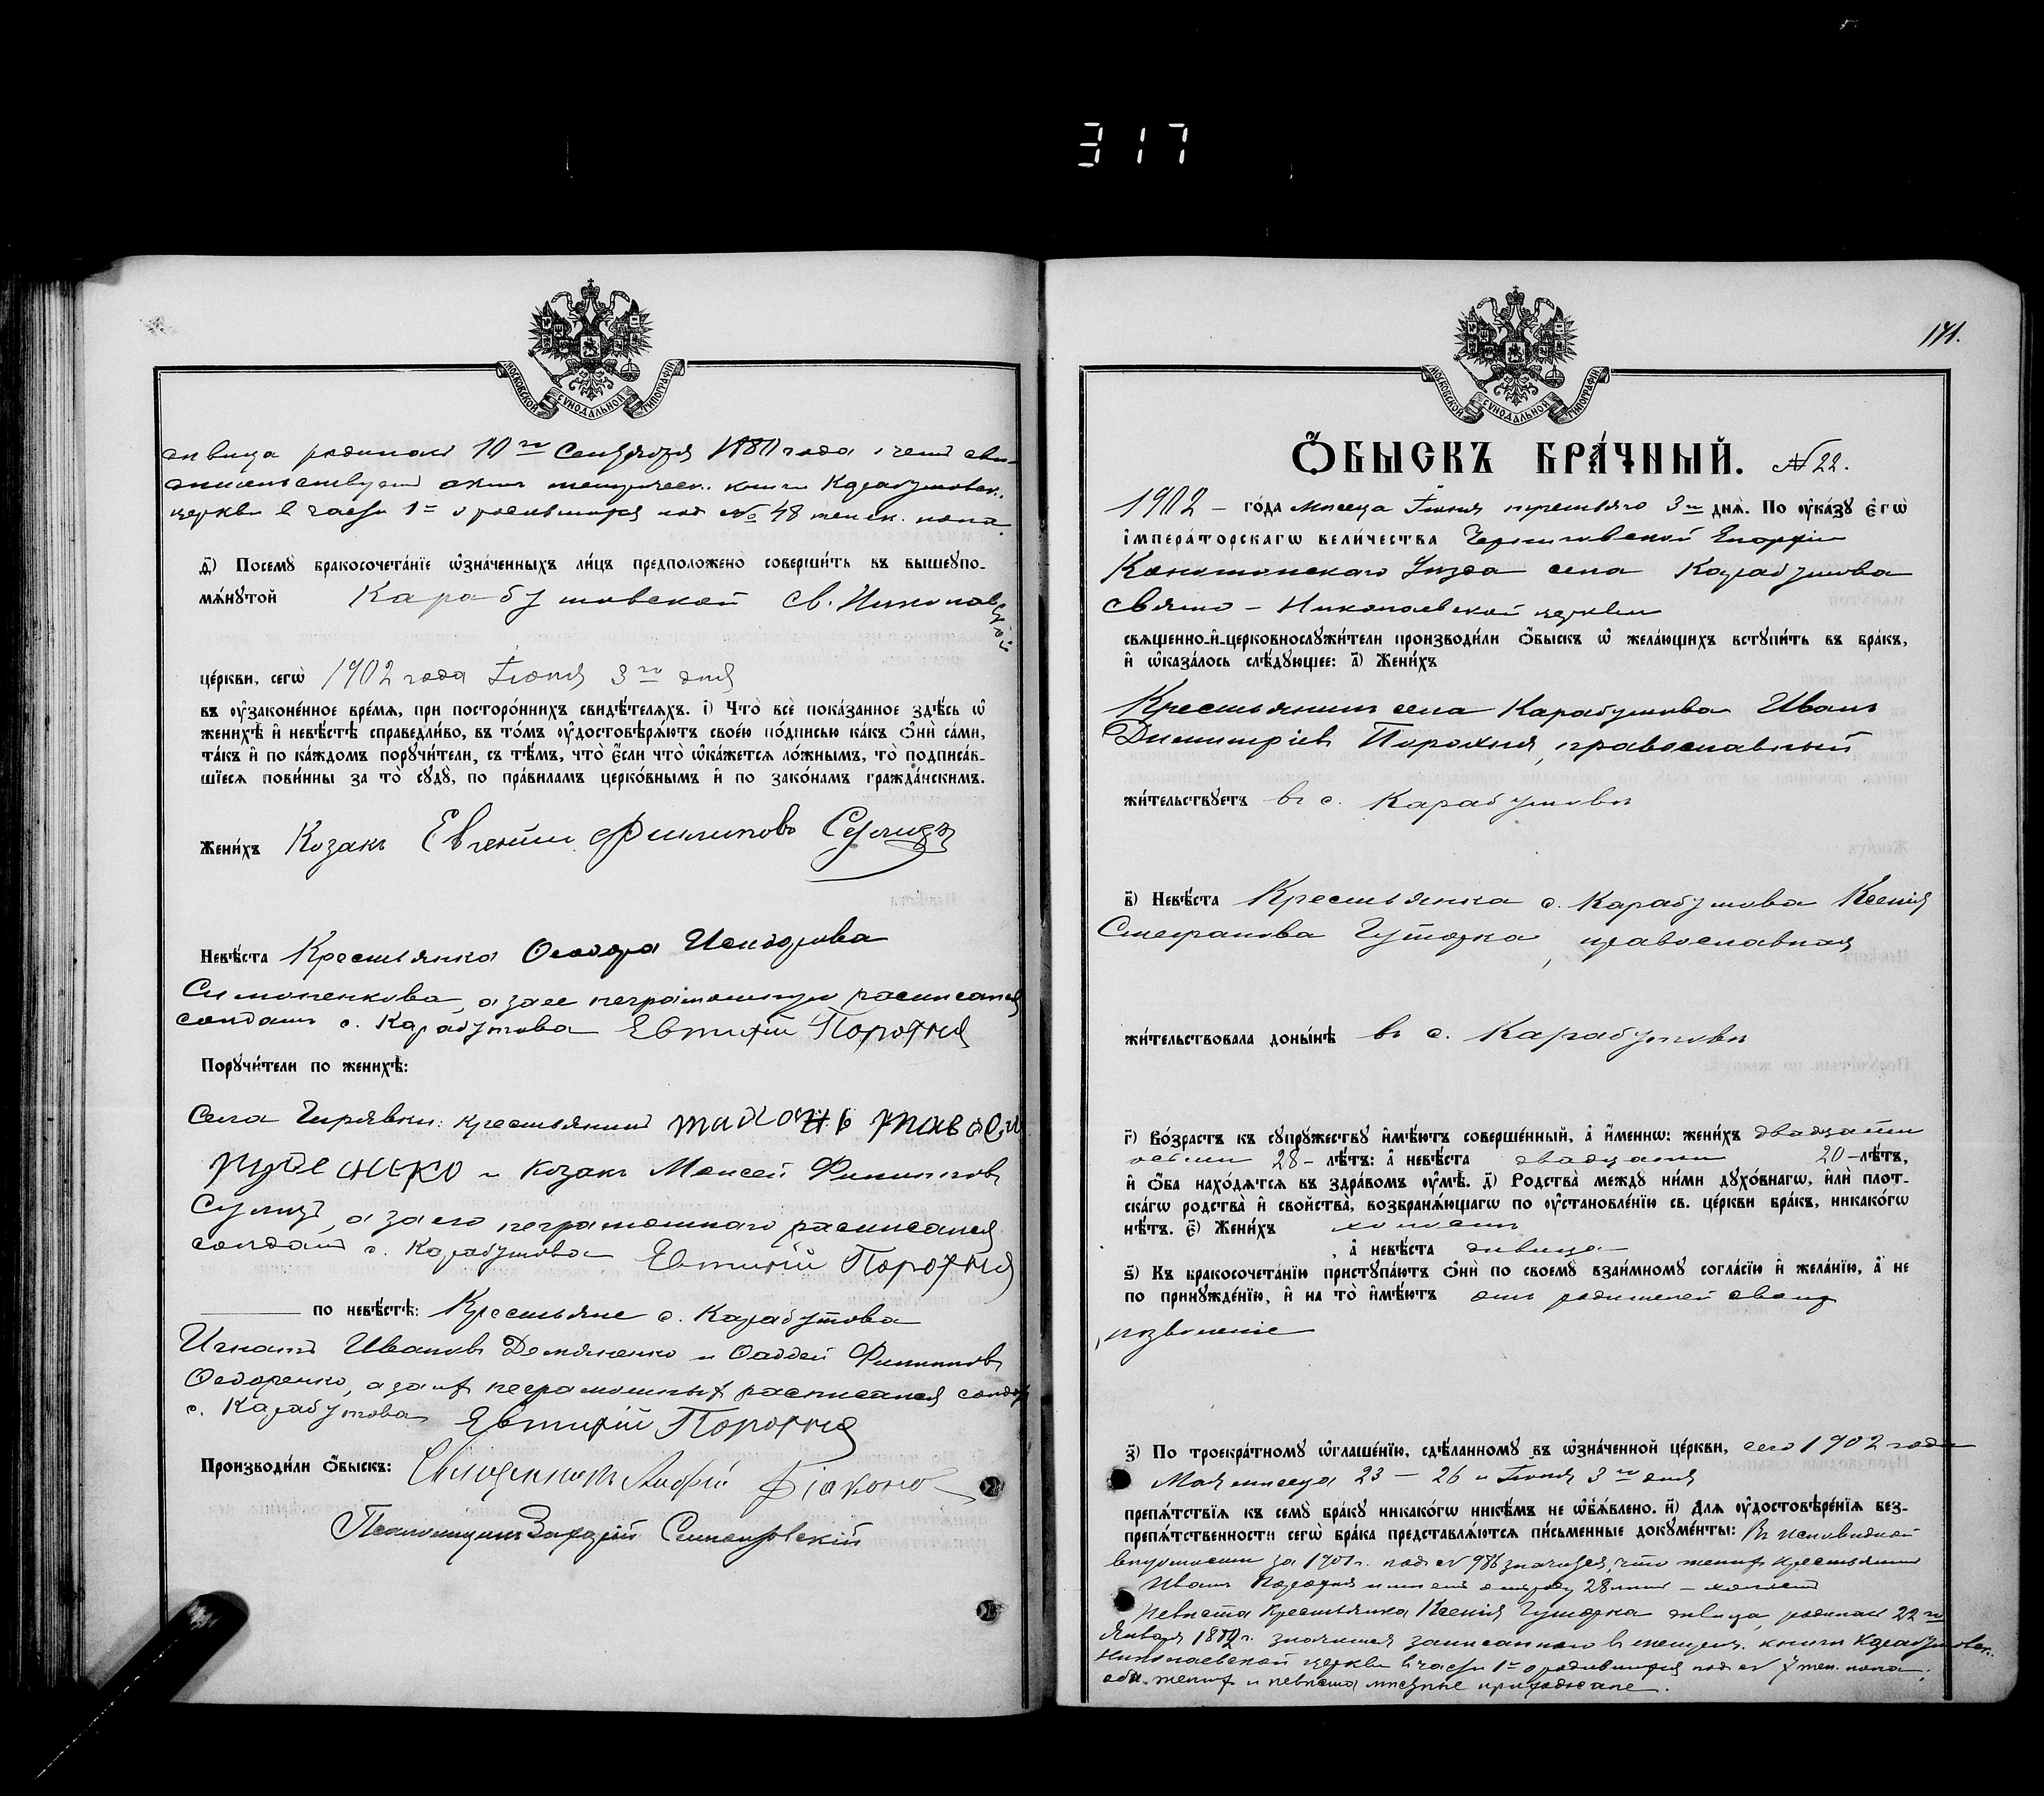 317
МОСКОВСКОЙ СѴНОДАЛЬНОЙ ТИПОГРАФІИ
дѣвица родилась 10го Сентября 1880 года о чемъ сви-
дѣтельствуетъ актъ метрическ. книги Карабутовск.
церкви в части 1й о родившихся под № 48 женск. пола.
д҃і) Посемꙋ̀ бракосочета́нїе ѡ҆зна́ченныхъ ли́цъ предположено̀ соверши́ть въ вышеꙋпо-
мѧ́нꙋтой Карабутовской Св. Николаевской
це́ркви, сегѡ̀ 1902 года Іюня 3го дня
въ ᲂу҆зако́ненное вре́мѧ, при посторо́ннихъ свидѣ́телѧхъ. і҃) Что̀ всѐ пока́занное здѣ́сь ѡ҆
женихѣ̀ и҆ невѣ́стѣ справедли́во, въ то́мъ ᲂу҆достовѣрѧ́ютъ свое́ю по́дписью ка́къ Ѻ҆нѝ са́ми,
та́къ и҆ по ка́ждомъ порꙋчи́тели, съ тѣ́мъ, что̀ є҆́сли что̀ ѡ҆ка́жетсѧ ло́жнымъ, то̀ подписа́в-
шїесѧ пови́нны за то̀ сꙋдꙋ̀, по пра́виламъ церко́внымъ и҆ по зако́намъ гражда́нскимъ.
Жени́хъ Козакъ Евгений Филиповъ Сулицъ
Невѣ́ста Крестьянка Ѳеодора Исидорова
Симоненкова, а за ее неграмотную расписался
солдатъ с. Карабутова Евтихій Порохня
Порꙋчи́тели по женихѣ̀:
Села Гирявки: крестьянинъ
и козакъ Моисей Филиповъ
Сулицъ, а за его неграмотнаго расписался
солдатъ с. Карабутова Евтихій Порохня
по невѣ́стѣ: Крестьяне с. Карабутова
Игнатъ Ивановъ Демяненко и Фаддей Филиповъ
Ѳедоренко, а за ихъ неграмотныхъ расписался солдатъ
с. Карабутова Евтихій Порохня
Производи́ли Ѻ҆́быскъ: Священникъ Андрей Діаконо
Псаломщикъ Захарій
171.
МОСКОВСКОЙ СѴНОДАЛЬНОЙ ТИПОГРАФІИ
Ѻ҆́БЫСКЪ БРА́ЧНЫЙ. № 22.
1902 – го́да мѣсяца Іюня третьяго 3го днѧ̀. По ᲂу҆ка́зꙋ Є҆гѡ̀
І҆мпера́торскагѡ вели́чества Черниговской Епархіи
Конотопскаго Уѣзда села Карабутова
Свято-Николаевской церкви
свѧще́нно-и҆-церковнослꙋжи́тели производи́ли Ѻ҆́быскъ ѡ҆ жела́ющихъ встꙋпи́ть въ бра́къ,
и҆ ѡ҆каза́лось слѣ́дꙋющее: а҃) Жени́хъ
Крестьянинъ села Карабутова Иванъ
Димитріевъ Порохня, православный
жи́тельствꙋетъ въ с. Карабутовѣ
в҃) Невѣ́ста Крестьянка с. Карабутова Ксенія
Стефанова Гуторка, православная
жи́тельствовала доны́нѣ въ с. Карабутовѣ
г҃) Во́зрастъ къ сꙋпрꙋ́жествꙋ и҆мѣ́ютъ соверше́нный, а҆ и҆́меннѡ: жени́хъ двадцати
осьми 28 – лѣ́тъ: а҆ невѣ́ста двадцати 20 – лѣ́тъ,
и҆ Ѻ҆́ба нахо́дѧтсѧ въ здра́вомъ ᲂу҆мѣ̀. д҃) Родства̀ междꙋ ни́ми дꙋхо́внагѡ, и҆лѝ плот-
ска́гѡ родства̀ и҆ сво́йства̀, возбранѧ́ющагѡ по ᲂу҆становле́нїю св. це́ркви бра́къ, никако́гѡ
нѣ́тъ. є҃) Жени́хъ холостъ
, а҆ невѣ́ста дѣвица
ѕ҃) Къ бракосочета́нїю пристꙋпа́ютъ Ѻ҆нѝ по своемꙋ̀ взаи́мномꙋ согла́сїю и҆ жела́нїю, а҆ не
по принꙋжде́нїю, и҆ на то̀ и҆мѣ́ютъ отъ родителей своихъ
позволеніе
з҃) По троекра́тномꙋ ѡ҆глаше́нїю, сдѣ́ланномꙋ въ ѡ҆зна́ченной це́ркви, сего 1902 года
Мая мѣсяца 23 – 26 и Іюня 3го дня
препѧ́тствїѧ къ семꙋ̀ бра́кꙋ никако́гѡ никѣ́мъ не ѡ҆б̾ѧ́влено. и҃) Длѧ ᲂу҆достовѣре́нїѧ без-
препѧ́тственности сегѡ̀ бра́ка представлѧ́ютсѧ пи́сьменные докꙋме́нты: Въ исповѣдной
вѣдомости за 1901 г. подъ № значится, что женихъ крестьянинъ
Иванъ Порохня имѣетъ отъ роду 28 лѣтъ – холостъ
Невѣста крестьянка Ксенія Гуторка дѣвица, родилась 22го
Января 1882 г. значится записанною въ метрич. книги Карабутовск.
Николаевской церкви в части 1й о родившихся под № 7 жен. пола.
оба женихъ и невѣста мѣстные прихожане.